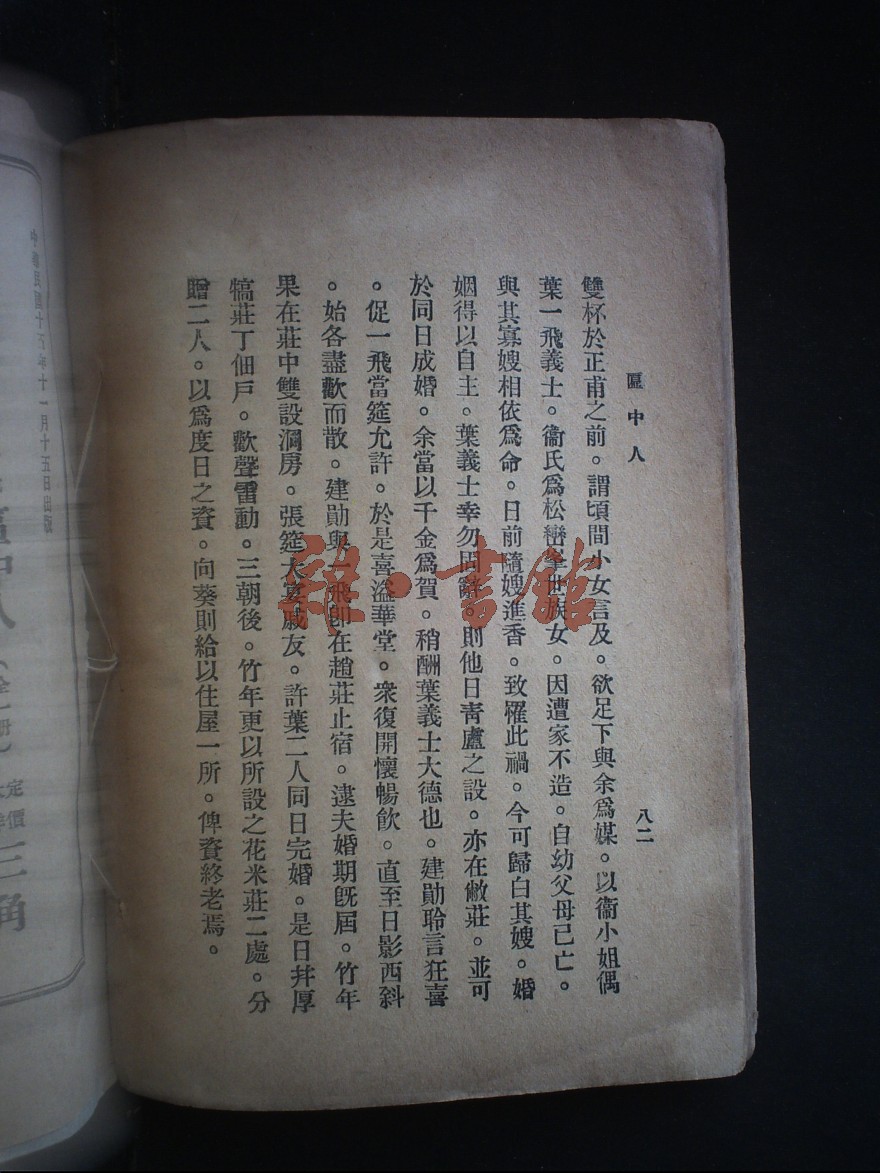 匾中人
八二
雙杯於正甫之前。謂頃間小女言及。欲足下與余爲媒。以衞小姐偶
葉一飛義士。衞氏爲松巒峯世族女。因遭家不造。自幼父母已亡。
與其寡嫂相依爲命。日前隨嫂進香。致罹此禍。今可歸白其嫂。婚
姻得以自主。葉義士幸勿固辭。則他日靑廬之設。亦在敝莊。並可
於同日成婚。余當以千金爲賀。稍酬葉義士大德也。建勛聆言狂喜
。促一飛當筵允許。於是喜溢華堂。衆復開懷暢飮。直至日影西斜
。始各盡歡而散。建勛與一飛卽在趙莊止宿。逮夫婚期旣屆。竹年
果在莊中雙設洞房。張筵大宴戚友。許葉二人同日完婚。是日幷厚
犒莊丁佃戶。歡聲雷動。三朝後。竹年更以所設之花米莊二處。分
贈二人。以爲度日之資。向葵則給以住屋一所。俾資終老焉。
中華民國十五年十一月十五日出版
中人
定價
三角
雜·書館